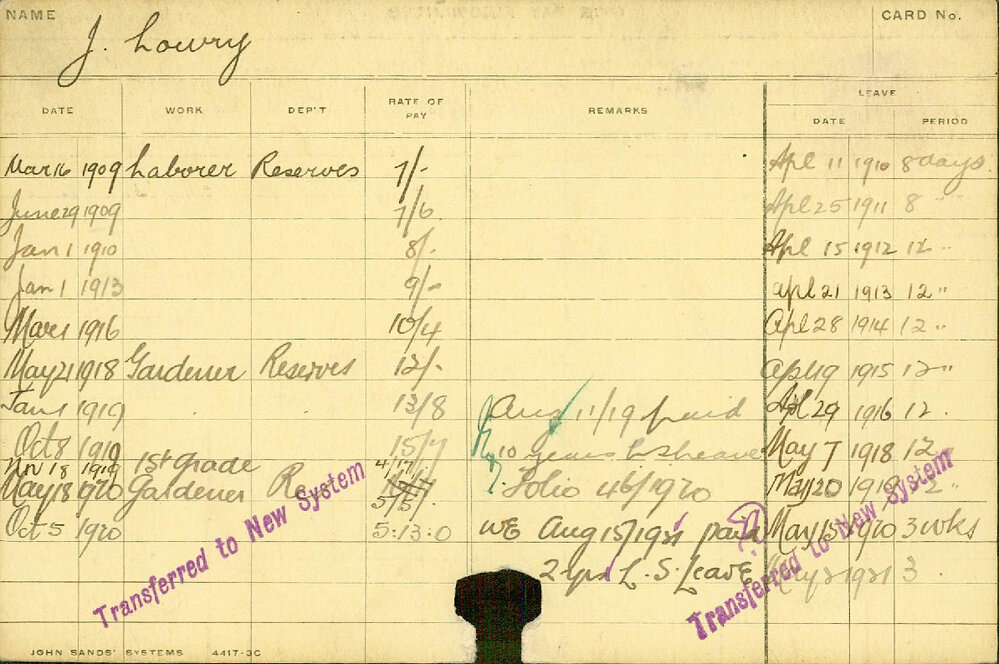 NAME J. Lowry CARD No.
LEAVE
DATE WORK DEP'T RATE OF PAY REMARKS DATE PERIOD
Mar 16 1909 Laborer Reserves 7/- Apl 11 1910 8 days.
June 29 1909 7/6 Apl 25 1911 8 "
Jan 1 1910 8/- Apl 15 1912 12 "
Jan 1 1913 9/- Apl 21 1913 12 "
Mar 1 1916 10/4 Apl 28 1914 12 "
May 21 1918 Gardener Reserves 12/- Apl 19 1915 12 "
Jan 1 1919 13/8 Aug 11/19 paid Apl 29 1916 12 "
Oct 8 1919 15/7 10 years L S Leave May 7 1918 12
Nov 18 1919 1st Grade 4/17/
May 18 1920 Gardener Re 5/5/ Folio 46/1920 May 20 1919 12 "
Oct 5 1920 5:13:0 WE Aug 15/1921 paid May 15 1920 3 wks
2 yrs L. S. Leave May 2 1921 3
Transferred to New System
Transferred to New System
JOHN SANDS' SYSTEMS 4417-3C